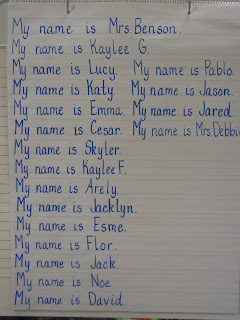 My name is Mrs. Benson.
My name is Kaylee G.
My name is Lucy. My name is Pablo.
My name is Katy. My name is Jason.
My name is Emma. My name is Jared.
My name is Cesar. My name is Mrs. Debbie
My name is Skyler.
My name is Kaylee F.
My name is Arely.
My name is Jacklyn.
My name is Esme.
My name is Flor.
My name is Jack.
My name is Noe.
My name is David.